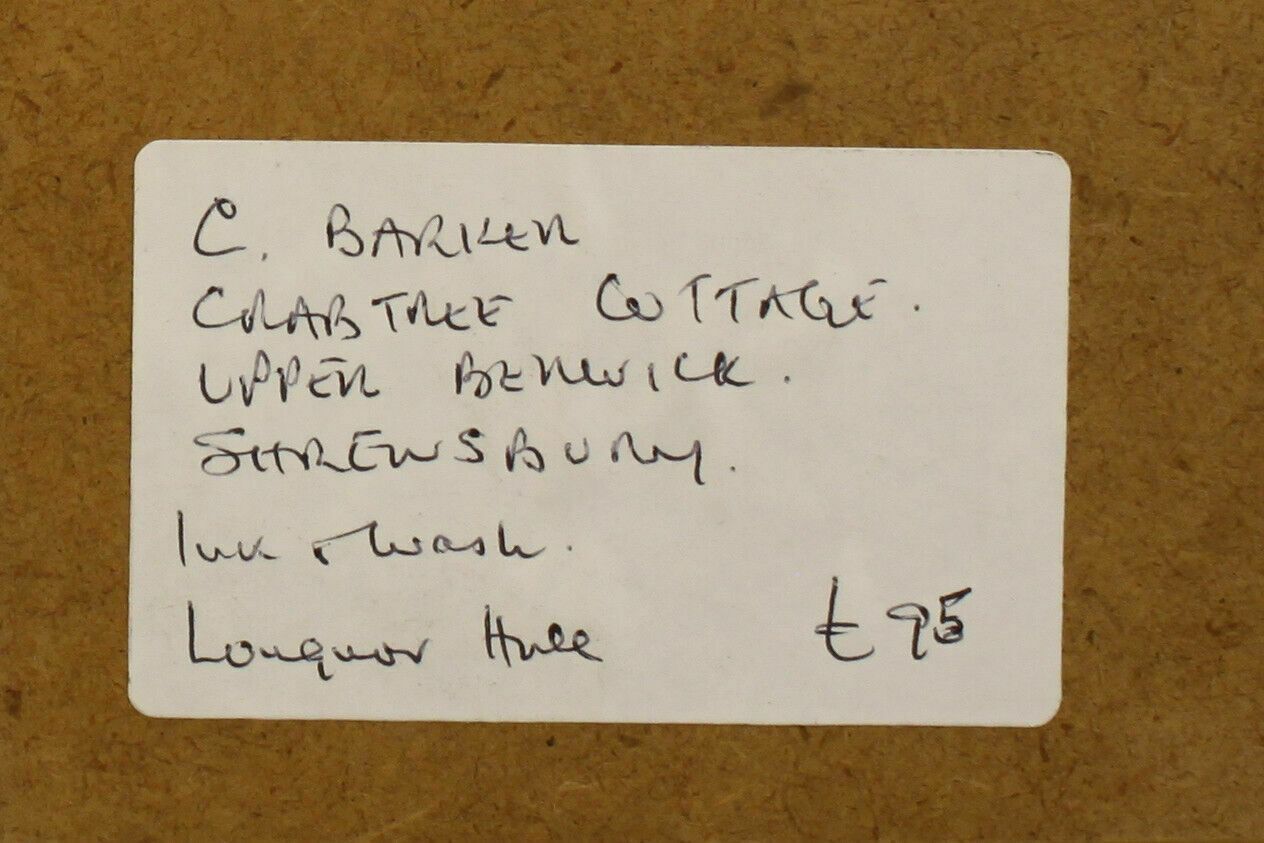 C. BARKER
CRABTREE COTTAGE.
UPPER BERWICK.
SHREWSBURY.
Ink & Wash.
Longnor Hall £95